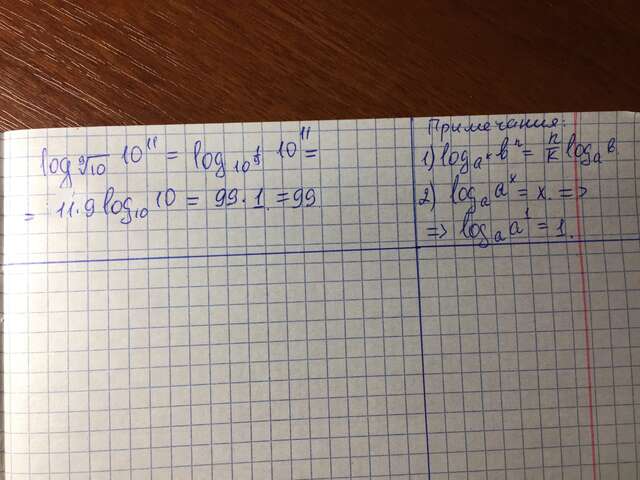 log_{⁹√10} 10¹¹ = log_{10^{1/9}} 10¹¹ =
= 11·9 log₁₀ 10 = 99·1 = 99
Примечания:
1) log_{aᵏ} bⁿ = n/k log_a b
2) log_a aˣ = x. =>
=> log_a a¹ = 1.